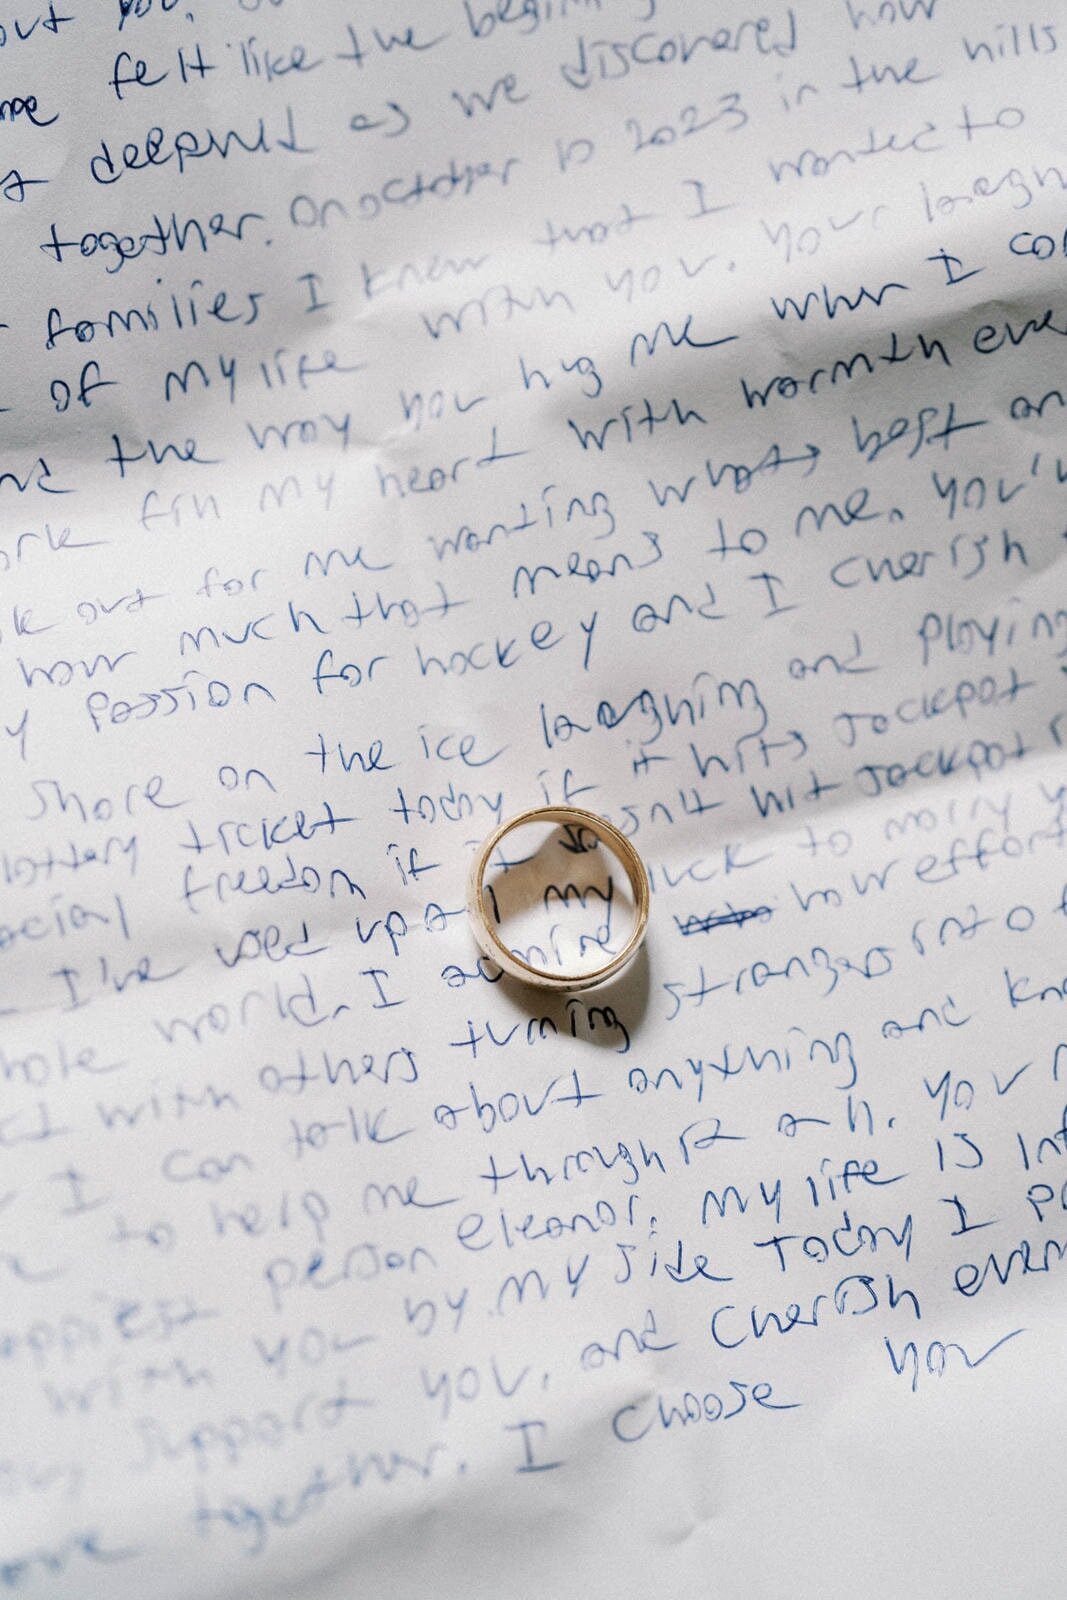 out you.
me felt like the beginn
deepned as we discovered how
together. On october 10 2023 in the hills
families I knew that I wanted to
of my life with you. Your laugh
the way you hug me when I
fill my heart with warmth eve
out for me wanting whats best an
how much that means to me. You'v
y passion for hockey and I cherish
share on the ice laughing and playing
lottery ticket today if it hits Jackpot
ncial freedom if it doesn't hit Jackpot
I've used up all my luck to marry y
hole world. I admire how effort
ct with others turning strangers into f
I can talk about anything and kno
to help me through it all. You
appiest person eleanor. My life is
with you by my side Today I
support you, and cherish ever
together. I choose you